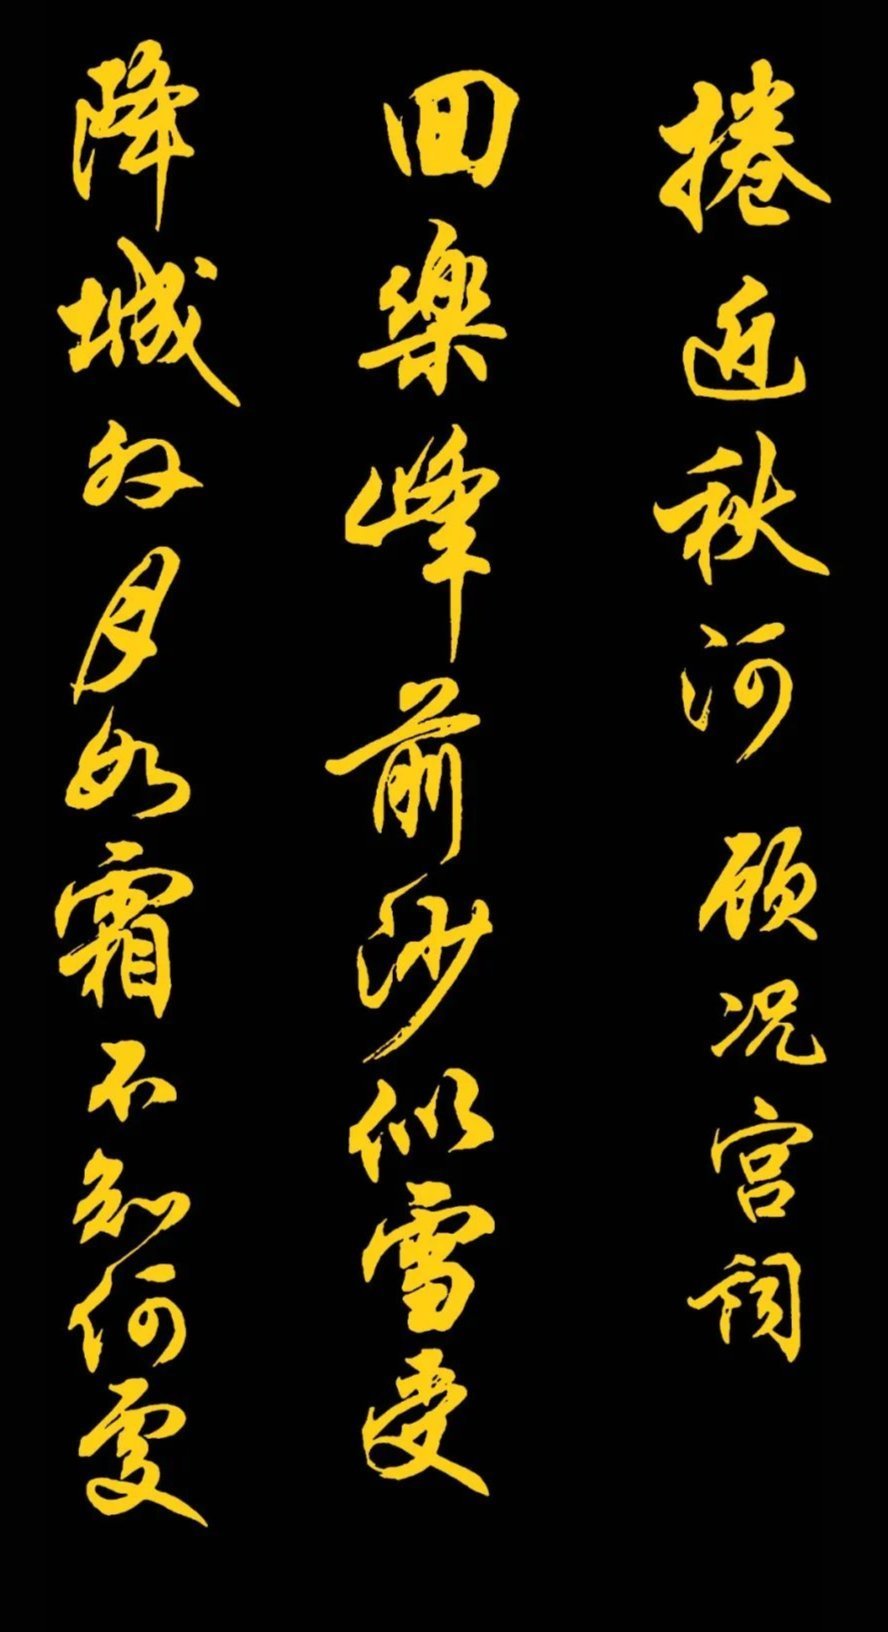 捲近秋河 顾况宫词
回樂峰前沙似雪受
降城外月如霜不知何處